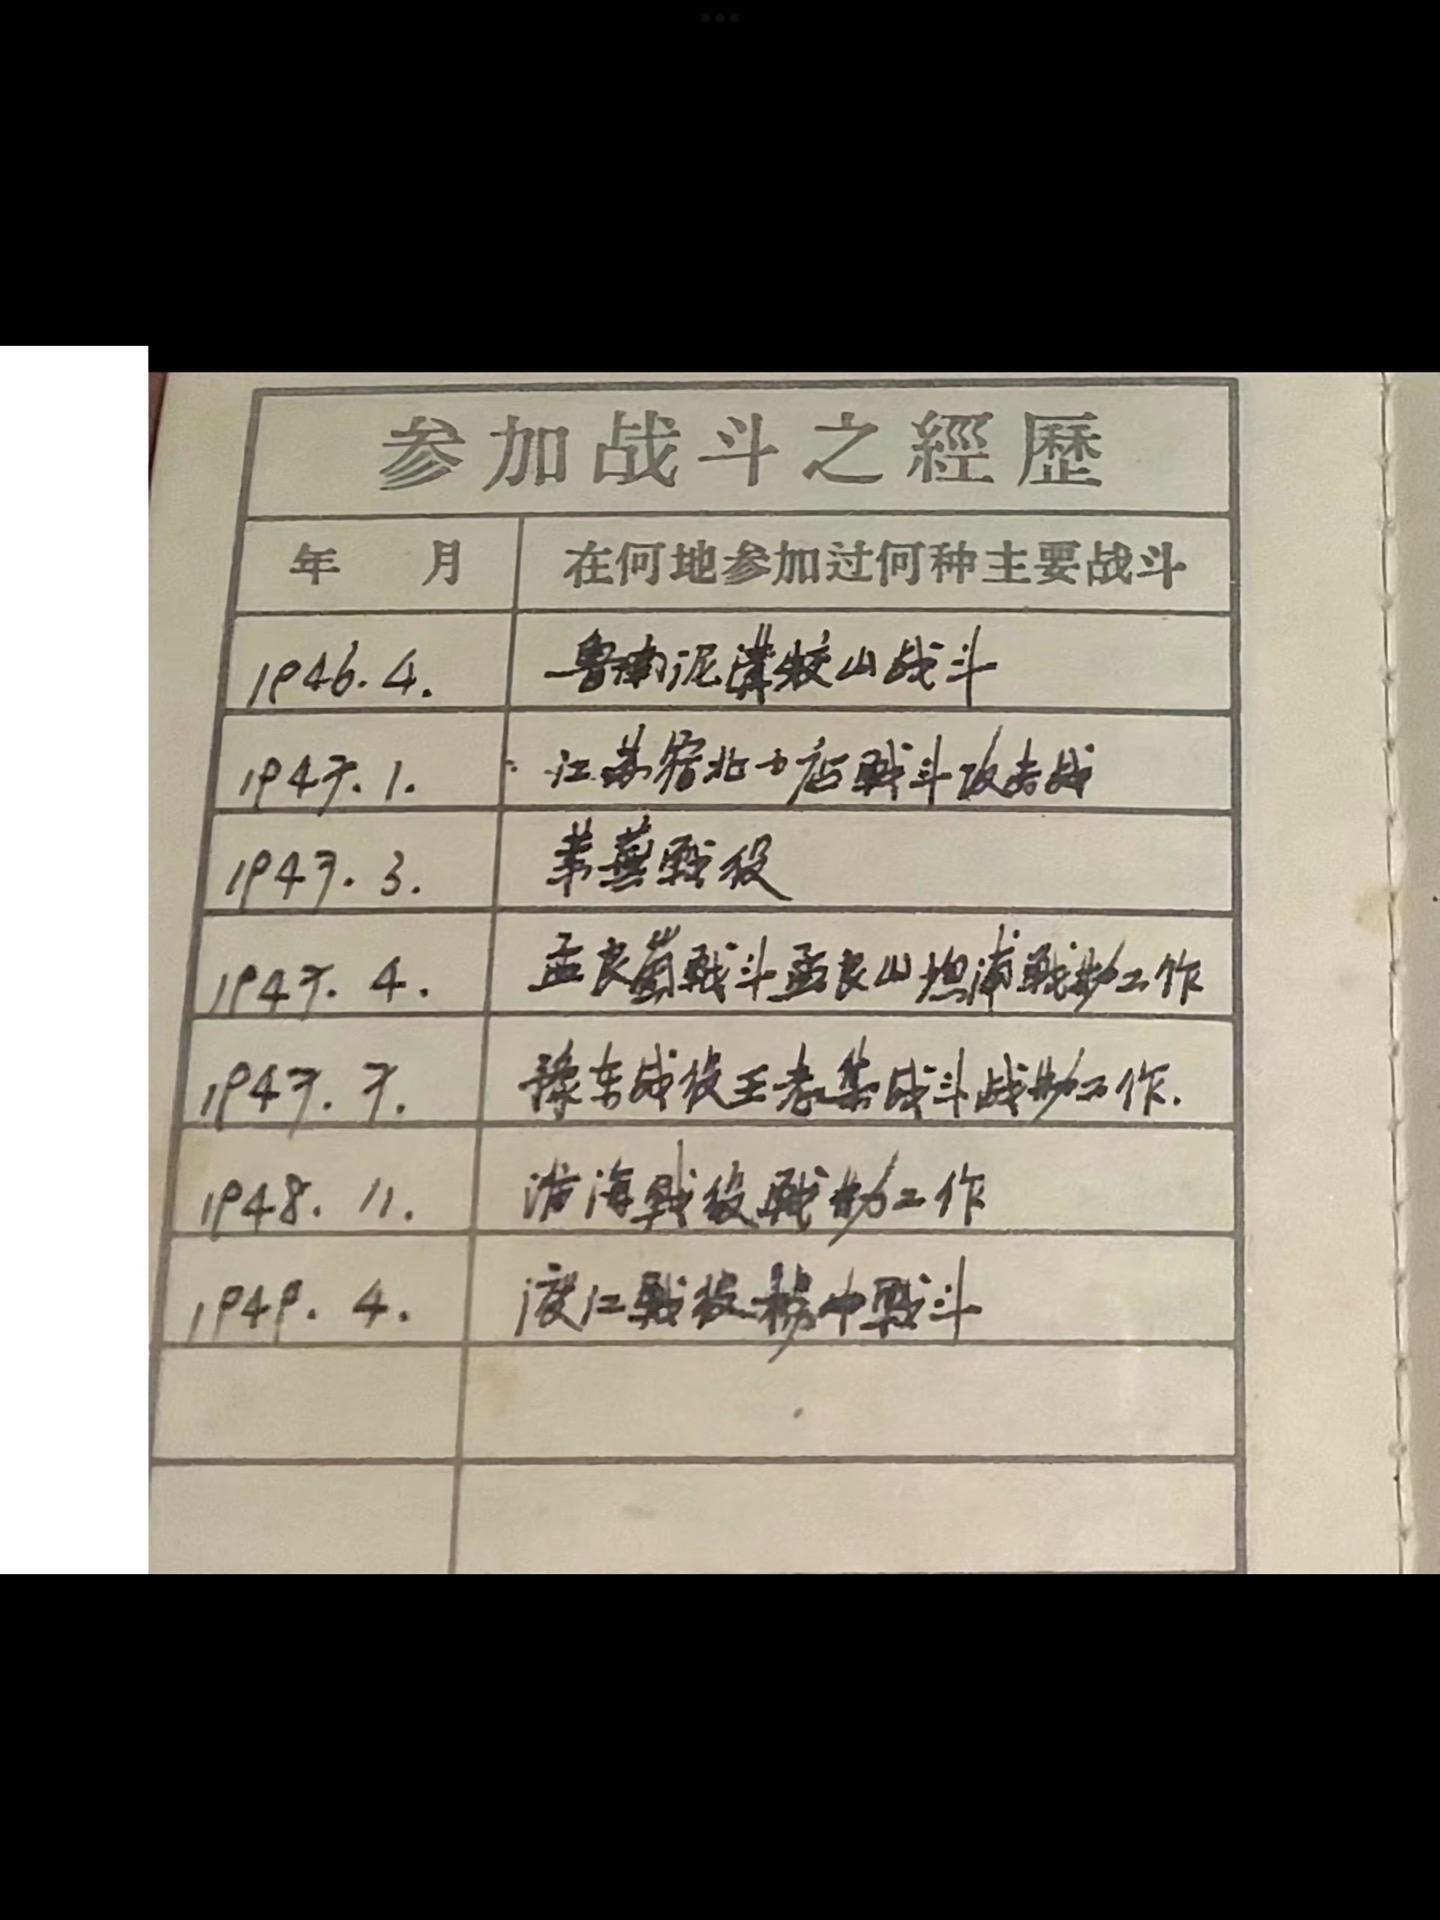 参加战斗之經歷
年 月 在何地参加过何种主要战斗
1946.4. 鲁南泥溝山战斗
1947.1. 江苏宿北店戰斗攻击战
1947.3. 莱蕪戰役
1947.4. 孟良崮戰斗孟良山坦浦戰勤工作
1947.7. 豫东战役王老集战斗战勤工作.
1948.11. 淮海戰役戰勤工作
1949.4. 渡江戰役中戰斗